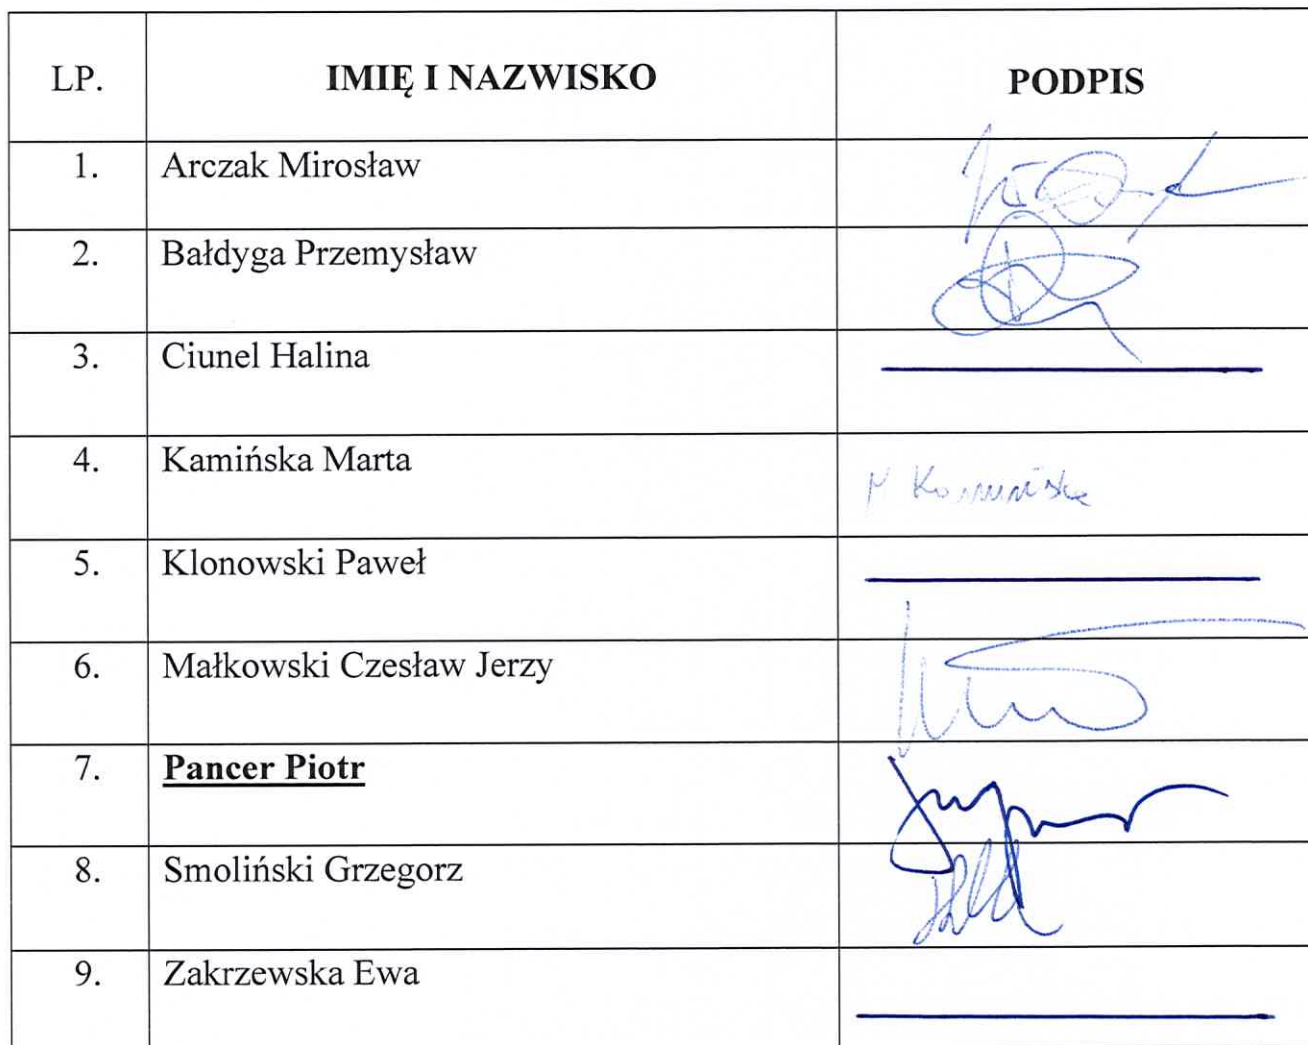 LP. IMIĘ I NAZWISKO PODPIS
1. Arczak Mirosław
2. Bałdyga Przemysław
3. Ciunel Halina
4. Kamińska Marta M Kamińska
5. Klonowski Paweł
6. Małkowski Czesław Jerzy
7. Pancer Piotr
8. Smoliński Grzegorz
9. Zakrzewska Ewa